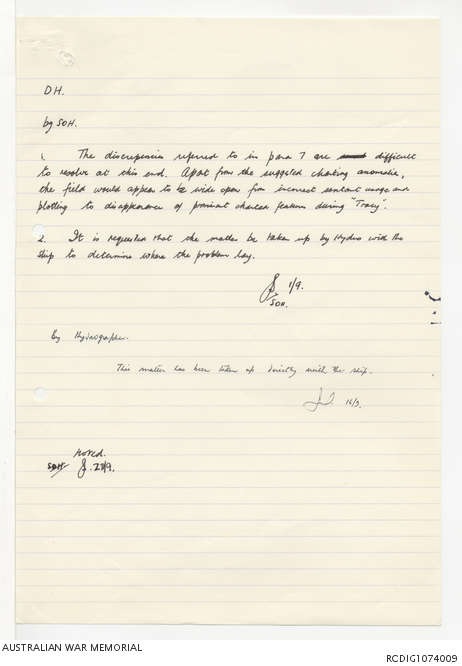 DH.
by SOH.
1. The discrepancies referred to in para 7 are difficult
to resolve at this end. Apart from the suggested charting anomalies,
the field would appear to be wide open from incorrect sextant usage and
plotting to disappearance of prominent charted features during "Tracy".
2. It is requested that the matter be taken up by Hydro with the
ship to determine where the problem lay.
1/9.
SOH.
By Hydrographer.
This matter has been taken up directly with the ship.
16/9.
Noted.
SOH 23/9.
AUSTRALIAN WAR MEMORIAL
RCDIG1074009